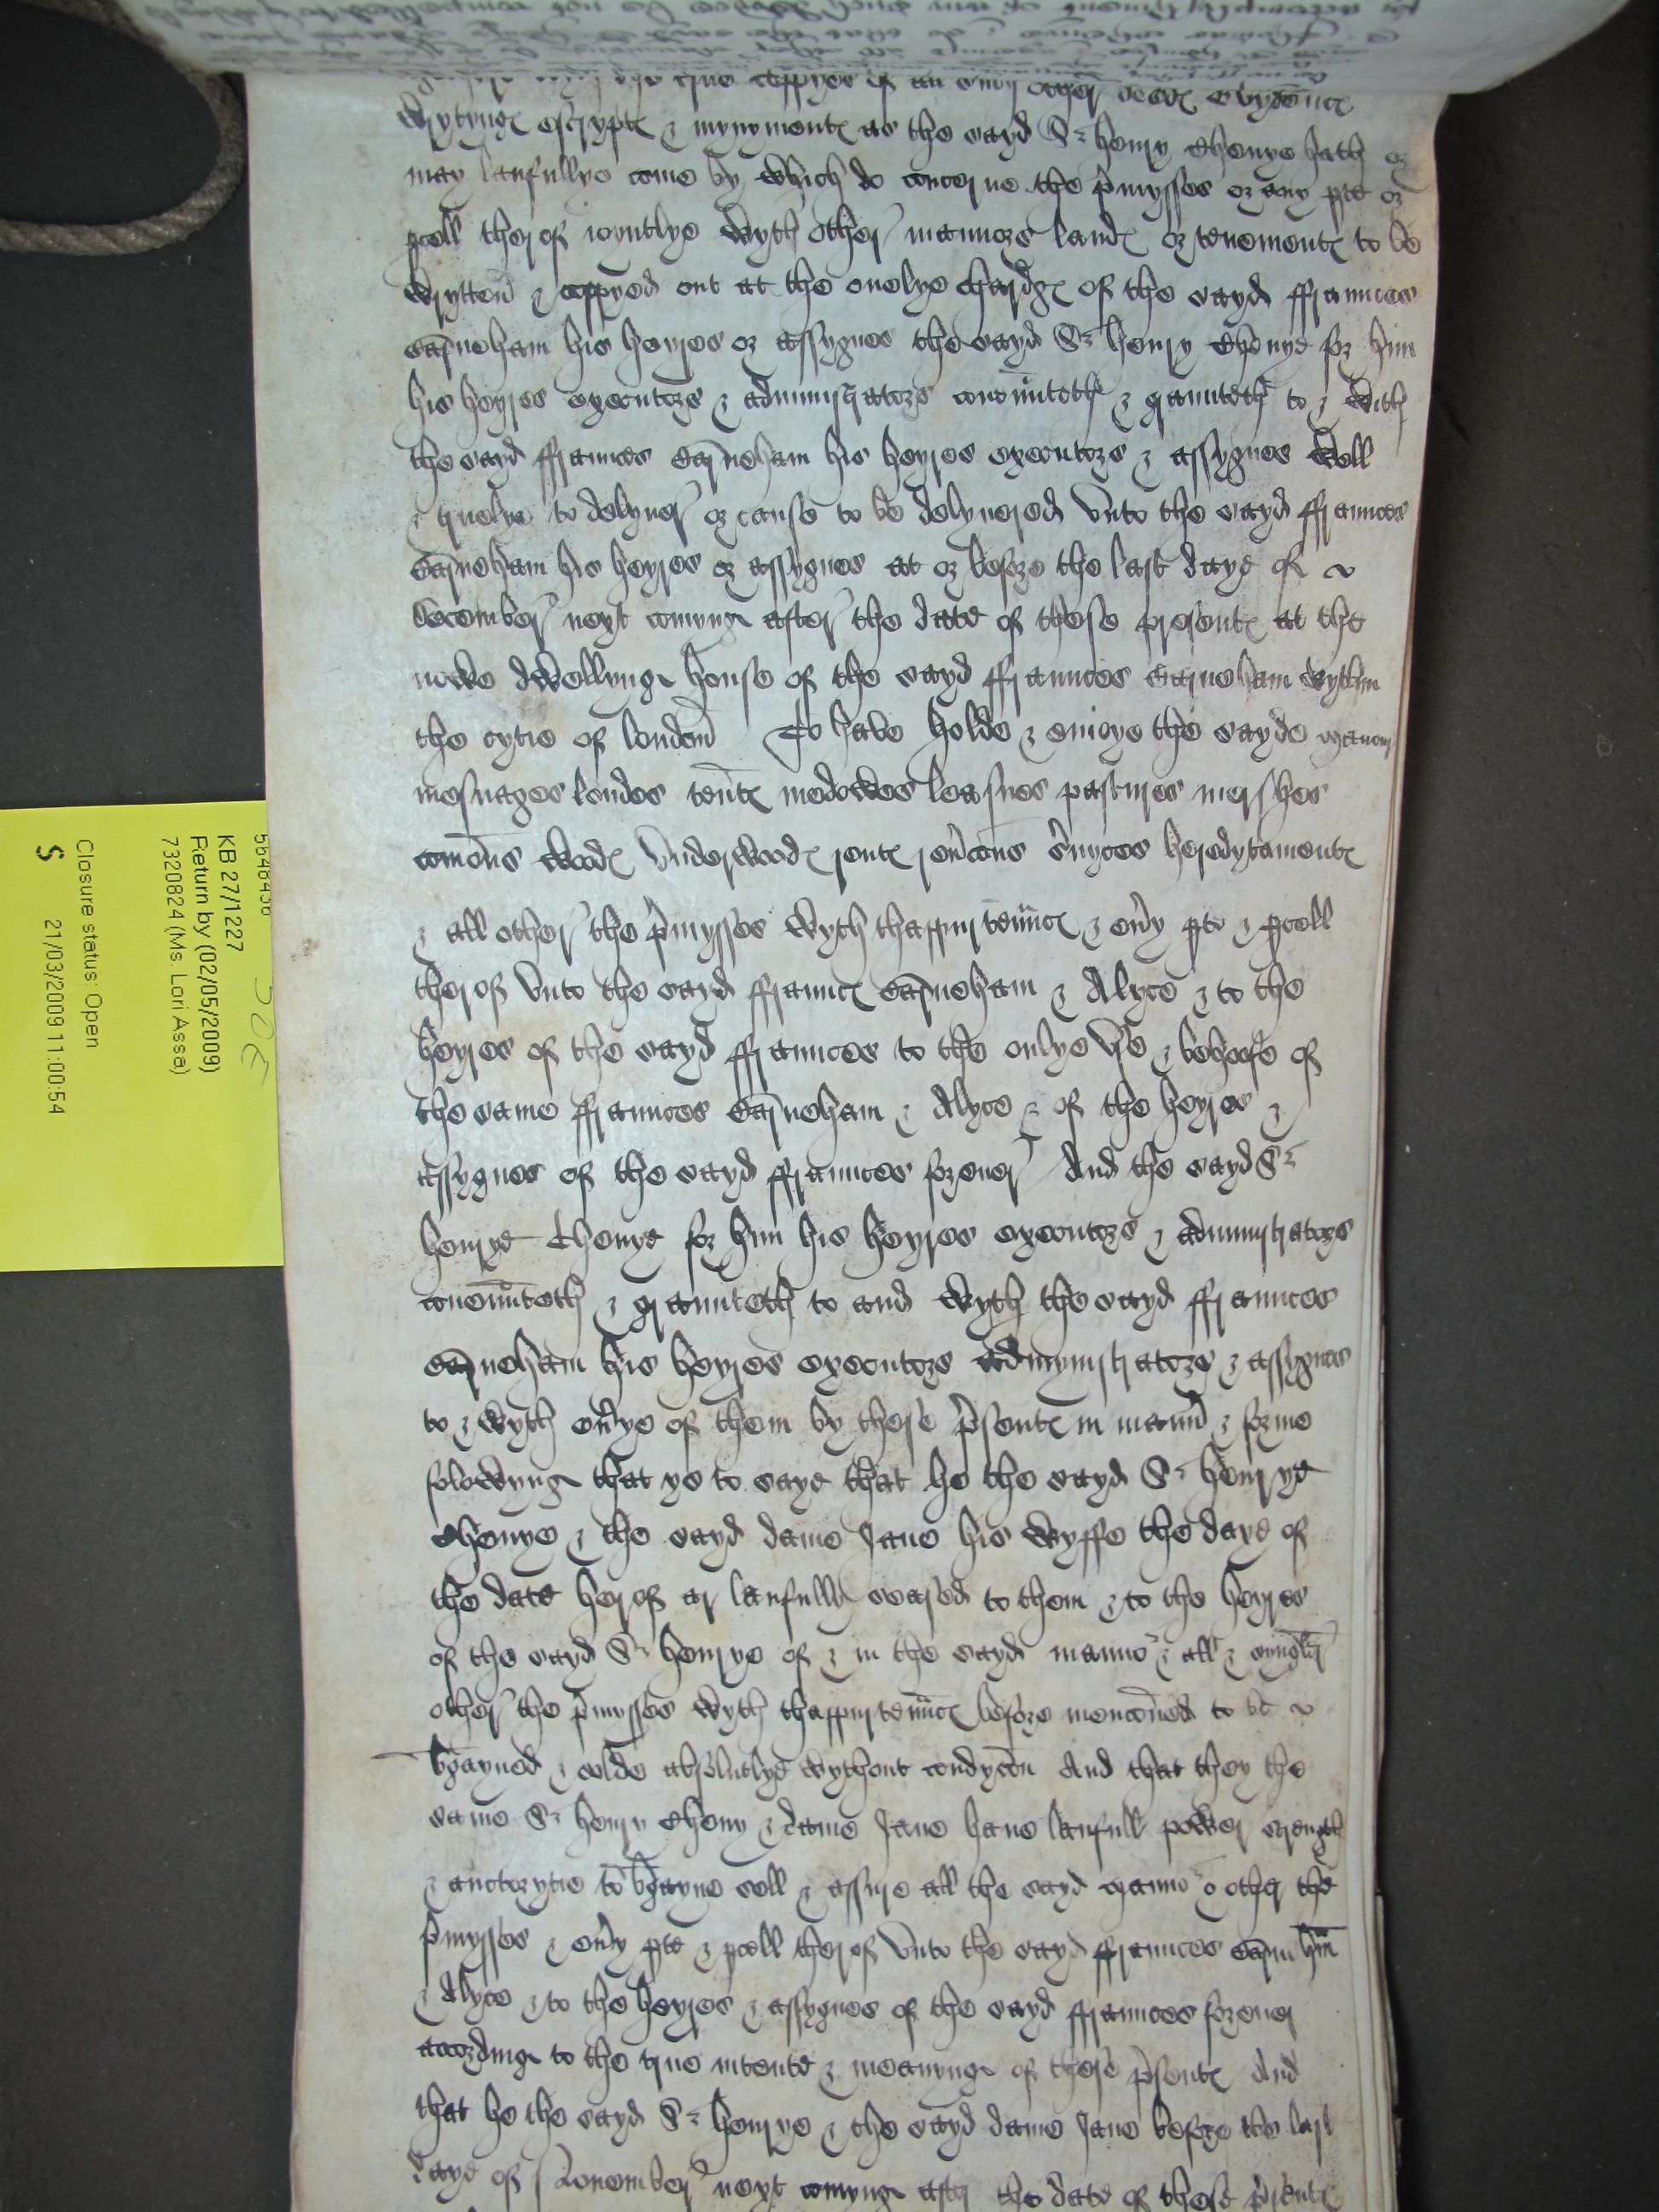 true coppyes of all every other dede evydenc
wrytyng escrypt & mynyment as the sayd Sr henry Cheney hath or
may laufullye come by which do concerne the pmysses or any pte or
pcell therof ioyntlye wyth other mannors land or tenement to be
wrytten & coppyed out at the onelye chardg of the sayd ffraunces
Barneham his heyres or assygnes the sayd Sr henry Cheny for him
his heyres executors & administrators couenuteth & graunteth to & with
the sayd ffraunces Barneham his heyres executors & assygnes well
& truelye to delyuer or cause to be delyuered vnto the sayd ffraunces
Barneham his heyres or assygnes at or before the last daye of
december next comyng after the date of these present at the
nowe dwellyng house of the sayd ffraunces Barneham wythin
the cytie of london To have holde & enioye the sayde manor
mesuages londes tent medowes leasues pastures mershes
comons wood Underwood rent reucons suyces heredytament
& all other the pmysses wyth thappurtennc & euy pte & pcell
therof vnto the sayd ffraunc Barneham & Alyce & to the
heyres of the sayd ffraunces to the onlye vse & behoofe of
the same ffraunces Barneham & Alyce & of the heyres &
assygnes of the sayd ffraunces foreuer And the sayd Sr
henrye Cheney for him his heyres executors & administrators
couenuteth & graunteth to and wyth the sayd ffraunces
Barneham his heyres executors admynistrators & assygnes
to & wyth euye of them by these psent in mann & forme
folowyng that ys to saye that he the sayd Sr henrye
Cheyne & the sayd dame Jane his wyffe the daye of
the date herof ar laufully seased to them & to the heyres
of the sayd Sr henrye of & in the sayd manno & all & synglr
other the pmysses wyth thappurtennc before menconed to be
bgayned & solde absolutlye wythout condycon And that they the
same Sr henry Cheny & dame Jane haue laufull power strength
& auctorytie to bgayne sell & assure all the sayd manno & other the
pmysses & euy pte & pcell therof vnto the sayd ffraunces Barnhm
& Alyce & to the heyres & assygnes of the sayd ffraunces foreuer
accordinge to the true intente & meanynge of these psent And
that he the sayd Sr henrye & the sayd dame Jane before the last
daye of Nouember next comynge after the date of these psent
KB 27/1227
Return by (02/05/2009)
7320824 (Ms. Lori Asse)
Closure status: Open
S 21/03/2009 11:00:54